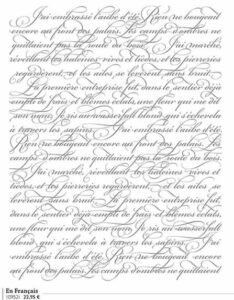 J'ai embrassé l'aube d'été. Rien ne bougeait
encore au front des palais. Les camps d'ombres ne
quittaient pas la route du bois. J'ai marché,
réveillant les haleines vives et tièdes, et les pierreries
regardèrent, et les ailes se levèrent sans bruit.
La première entreprise fut, dans le sentier déjà
empli de frais et blêmes éclats, une fleur qui me dit
son nom. Je ris au wasserfall blond qui s'échevela
à travers les sapins. J'ai embrassé l'aube d'été.
Rien ne bougeait encore au front des palais. Les
camps d'ombres ne quittaient pas la route du bois.
J'ai marché, réveillant les haleines vives et
tièdes, et les pierreries regardèrent, et les ailes se
levèrent sans bruit. La première entreprise fut,
dans le sentier déjà empli de frais et blêmes éclats,
une fleur qui me dit son nom. Je ris au wasserfall
blond qui s'échevela à travers les sapins. J'ai
embrassé l'aube d'été. Rien ne bougeait encore
au front des palais. Les camps d'ombres ne quittaient
En Français
22,95 €